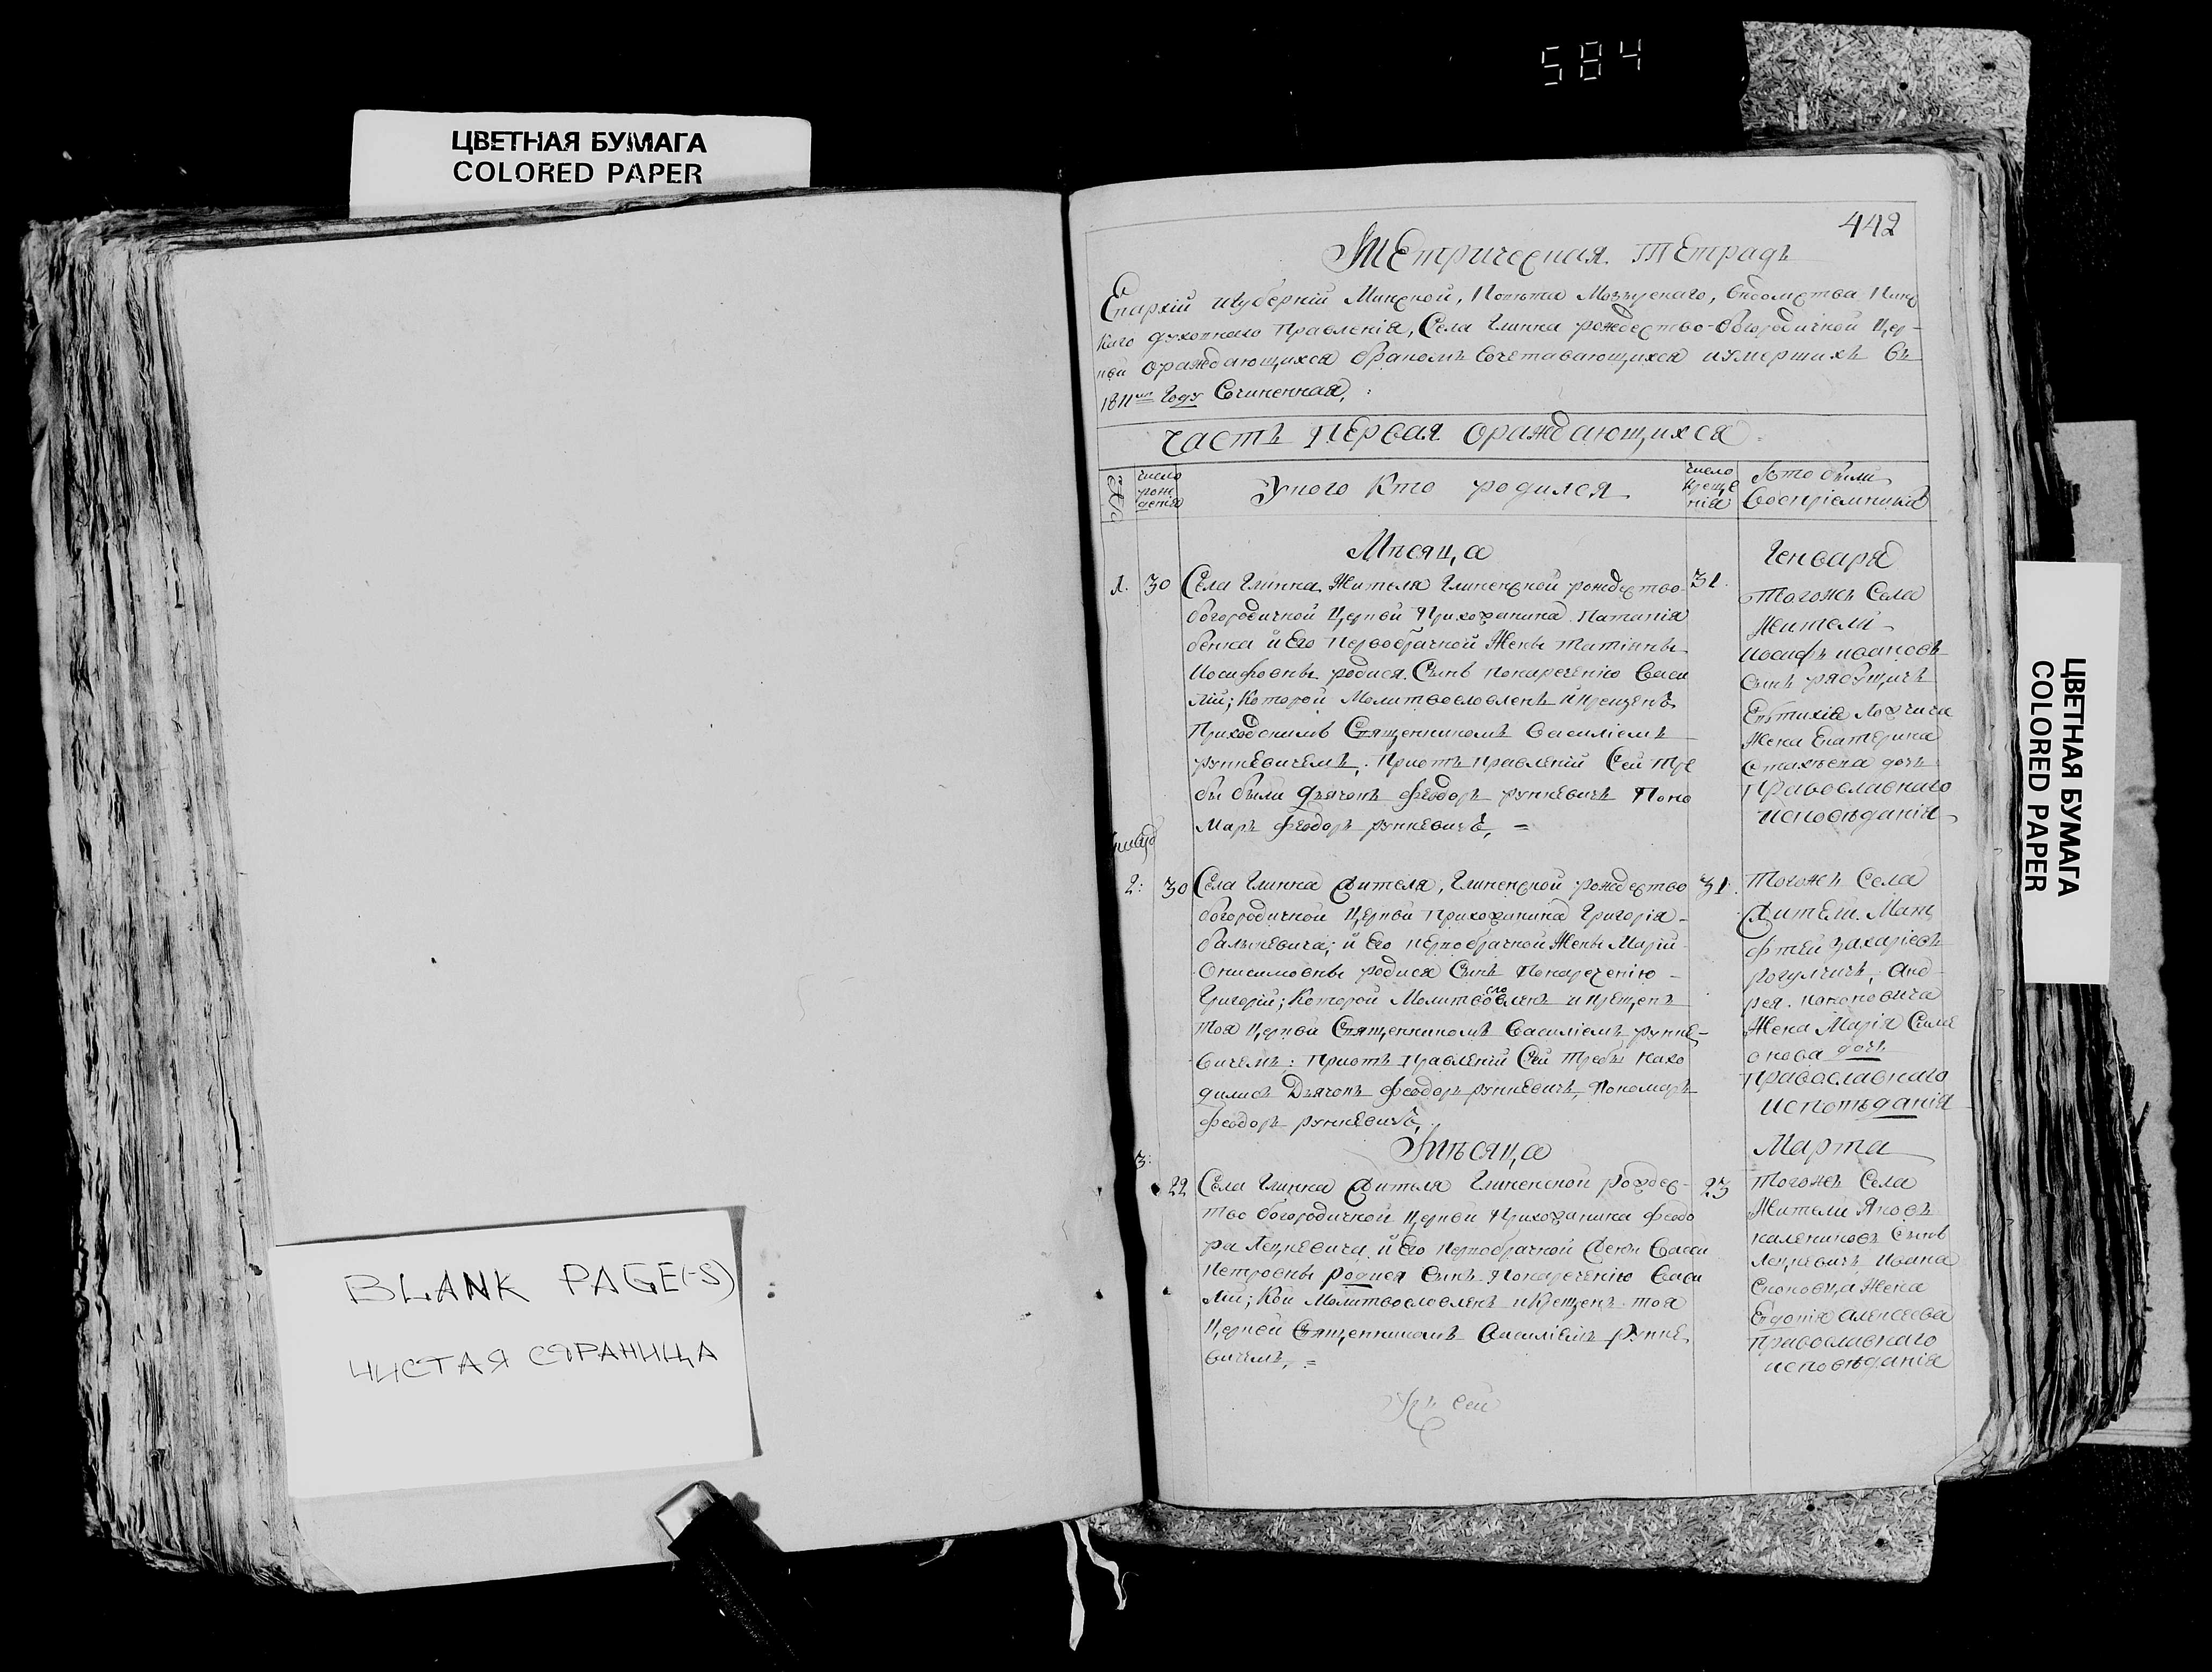 584
ЦВЕТНАЯ БУМАГА
COLORED PAPER
442
Метрическая Тетрадь
Епархій и Губерній Минской, Повѣта Мозырскаго, вѣдомства Пинс
каго духовнаго Правленія, Села Глинна рождество-богородичной Цер-
кви ораждающихся бракомъ Сочетавающихся и умершихъ въ
1811мъ Году Сочиненная,
Часть Первая ораждающихся
число рож денія
У кого Кто родился
число креще нія
Кто были Воспріемники
Мѣсяца
Генваря
1. 30 Села Глинна Жителя Глиненской рождество-
богородичной Церкви Прихожанина
бенка и Его Первобрачной Жены Татіяны
Иосифовны родися Сынъ понареченію Васи
лій; Которой Молитвословленъ и крещенъ
Приходскимъ Священникомъ Василіемъ
рункевичемъ; Приотъправленій Сей Тре
бы были Дьячокъ Феодоръ рункевичъ Поно
маръ феодоръ рункевичъ, =
31.
Тогожъ Села
Жители
Иосифъ ивановъ
сынъ
Евтихія
Жена Екатерина
дочь
Православнаго
исповѣданія
2: 30 Села Глинна Жителя, Глиненской рождество
богородичной Церкви прихожанина Григорія
и Его первобрачной Жены Маріи
Онисимовны родися Сынъ Понареченію
Григорій; Которой Молитвословленъ и крещенъ
тоя Церкви Священникомъ Василіемъ рунке-
вичемъ: Приотъправленій Сей Требы нахо
дилисъ Дьячокъ Феодоръ рункевичъ, Пономаръ
феодоръ рункевичъ,
31.
Тогожъ Села
Жители Мат
фтей захаріевъ
Анд
рея
Жена Марія Симе
онова дочь
Православнаго
исповѣданія
Мѣсяца
Марта
3:
22 Села Глинна Жителя Глиненской рождес-
тво богородичной Церкви Прихожанина феодо
ра Лецкевича и Его первобрачной Жены Васси
Петровны родися Сынъ Понареченію Васи
лій; Кой Молитвословленъ и Крещенъ тоя
Церкви Священникомъ Василіемъ Рунке
вичемъ, =
23
Тогожъ Села
Жители Яковъ
калениковъ Сынъ
Лецкевичъ Ивана
Жена
Евдокія алексеева
Православнаго
исповѣданія
Сей
BLANK PAGE(-S)
ЧИСТАЯ СТРАНИЦА
ЦВЕТНАЯ БУМАГА
COLORED PAPER